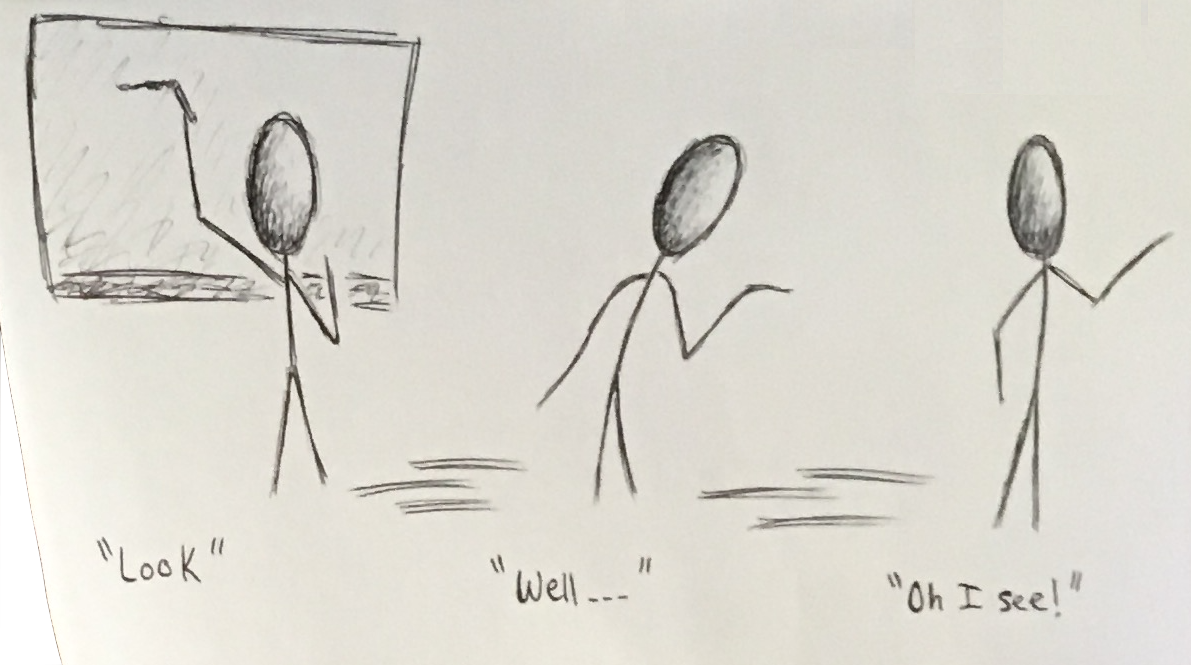 "Look"
"Well---"
"Oh I see!"